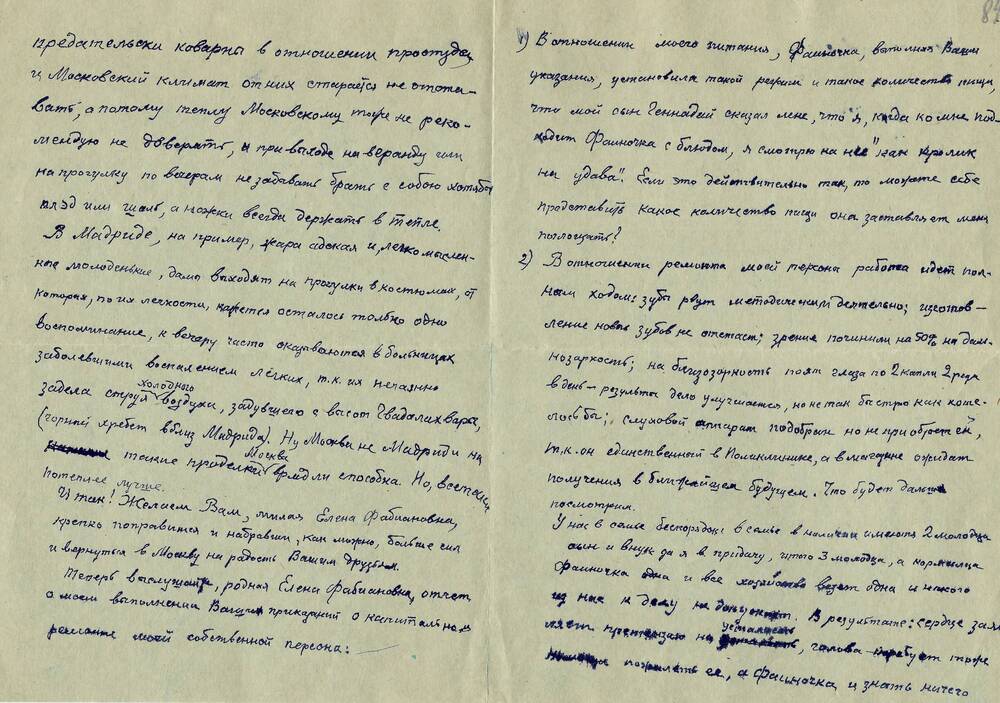 предательски коварны в отношении простуды
и Московский климат от них старается не отста-
вать, а потому теплу Московскому тоже не реко-
мендую не доверять, а при выходе на веранду или
на прогулку по вечерам не забывать брать с собою хотя бы
плэд или шаль, а ножки всегда держать в тепле.
В Мадриде, на пример, жара адская и, легкомыслен-
ные молоденькие, дамы выходят на прогулки в костюмах, от
которых, по их легкости, кажется осталось только одно
воспоминание, к вечеру часто оказываются в больницах
заболевшими воспалением лёгких, т.к. их нечаянно
задела струя холодного воздуха, задувшего с высот Гвадалихвары,
(горный хребет вблизи Мадрида). Ну, Москва не Мадрид и на
такие проделки Москва врядли способна. Но, все таки
потеплее лучше.
И так! Желаем Вам, милая Елена Фабиановна,
крепко поправится и набравши, как можно, больше сил
и вернуться в Москву на радость Вашим друзьям.
Теперь выслушайте, родная Елена Фабиановна, отчет
о моем выполнении Ваших приказаний о капитально
ремонте моей собственной персоны:
84
1) В отношении моего питания, Фаиночка, выполняя Ваши
указания, установила такой режим и такое количество пищи,
что мой сын Геннадий сказал мне, что "я, когда ко мне под-
ходит Фаиночка с блюдом, я смотрю на неё "как кролик
на удава". Если это действительно так, то можете себе
представить какое количество пищи она заставляет меня
поглощать?
2) В отношении ремонта моей персоны работа идет пол-
ным ходом: зубы рвут методически деятельно; изготов-
ление новых зубов не отстает; зрение починили на 50% на даль-
нозоркость; на близозоркость поят глаза по 2 капли 2 раза
в день - результа дело улучшается, но не так быстро как хоте-
лось бы; слуховой аппарат подобран но не приобретён,
т.к. он единственный в Поликлинике, а в магазине ожидат
получения в ближайшем будущем. Что будет дальше
посмотрим.
У нас в семье беспорядок: в семье в наличии имеются 2 молодца
сын и внук да я в придачу, итого 3 молодца, а кормилица
Фаиночка одна и все хозяйство ведет одна и никого
из нас к делу не допускает. В результате: сердце заяв
ляет претензию на усталость, голова требует тоже
пожалеть её, а Фаиночка и знать ничего